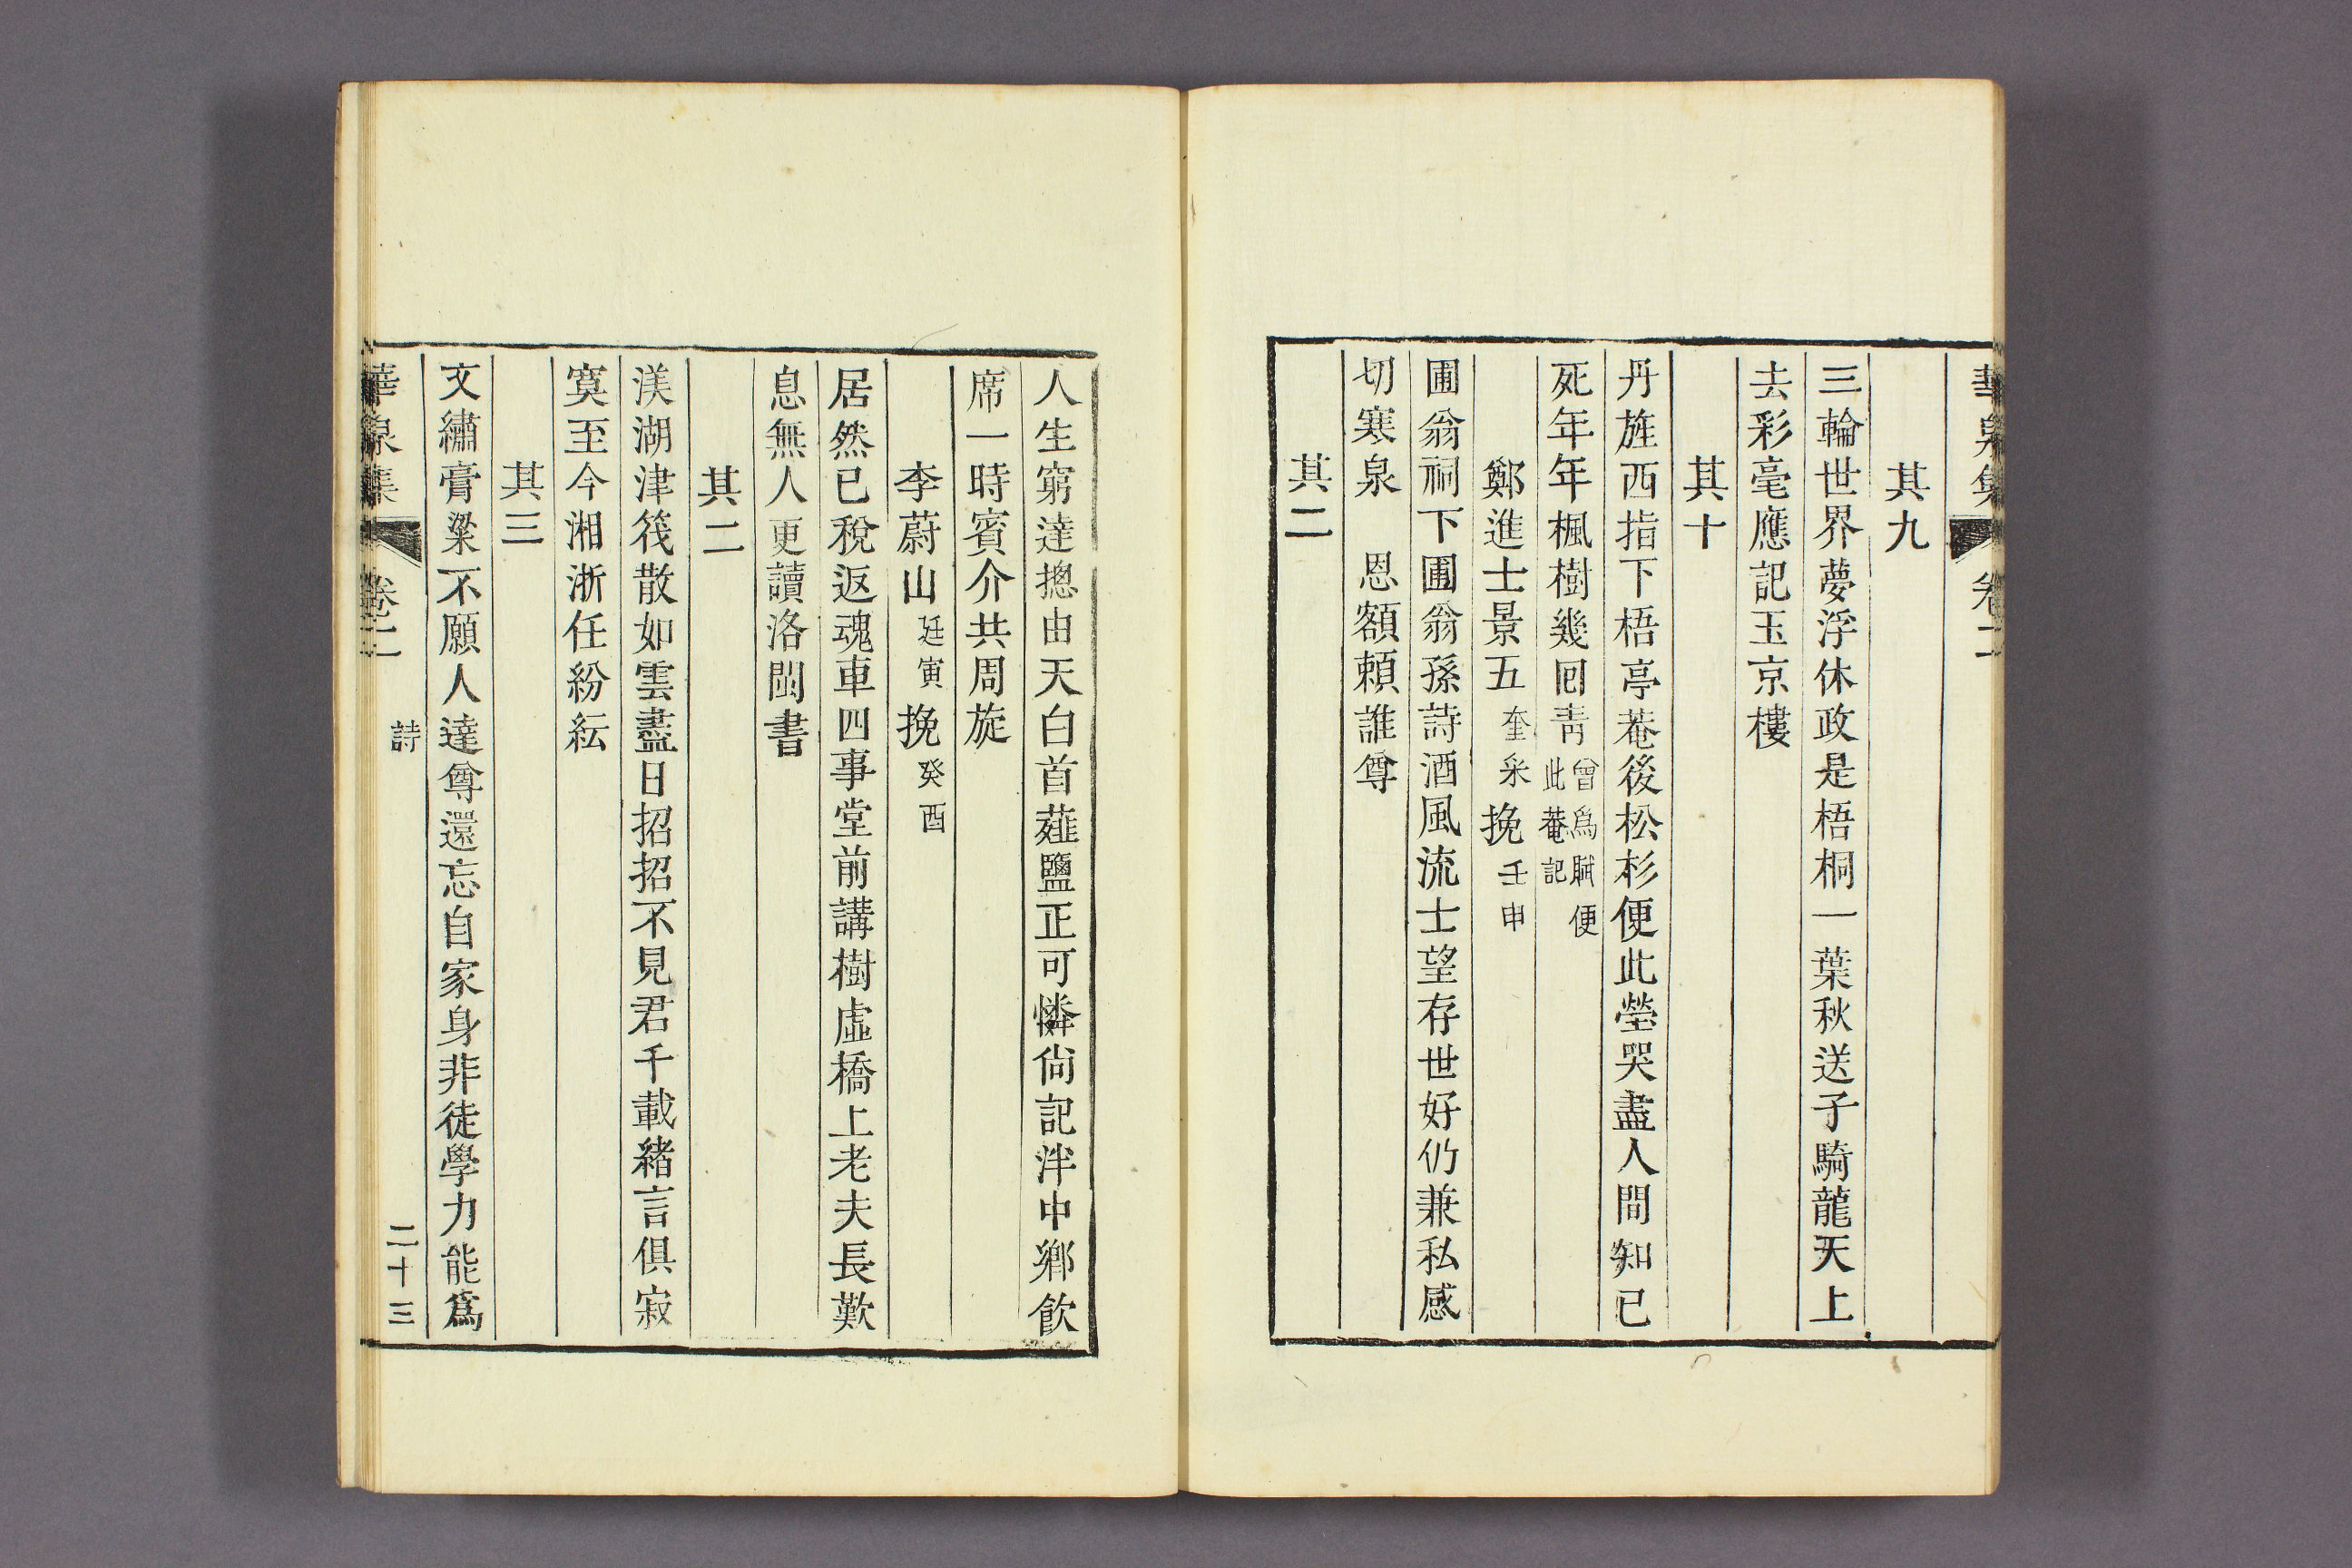 華泉集 卷二
其九
三輪世界夢浮休政是梧桐一葉秋送子騎龍天上
去彩毫應記玉京樓
其十
丹旌西指下梧亭菴後松杉便此塋哭盡人間知已
死年年楓樹幾回靑曾爲賦便此菴記
鄭進士景五奎采挽壬申
圃翁祠下圃翁孫詩酒風流士望存世好仍兼私感
切寒泉 恩額賴誰尊
其二
人生窮達摠由天白首薤鹽正可憐尙記泮中鄕飮
席一時賓介共周旋
李蔚山廷寅挽癸酉
居然已稅返魂車四事堂前講樹虛橋上老夫長歎
息無人更讀洛閩書
其二
渼湖津筏散如雲盡日招招不見君千載緖言俱寂
寞至今湘浙任紛紜
其三
文繡膏粱不願人達尊還忘自家身非徒學力能爲
華泉集 卷二 詩 二十三